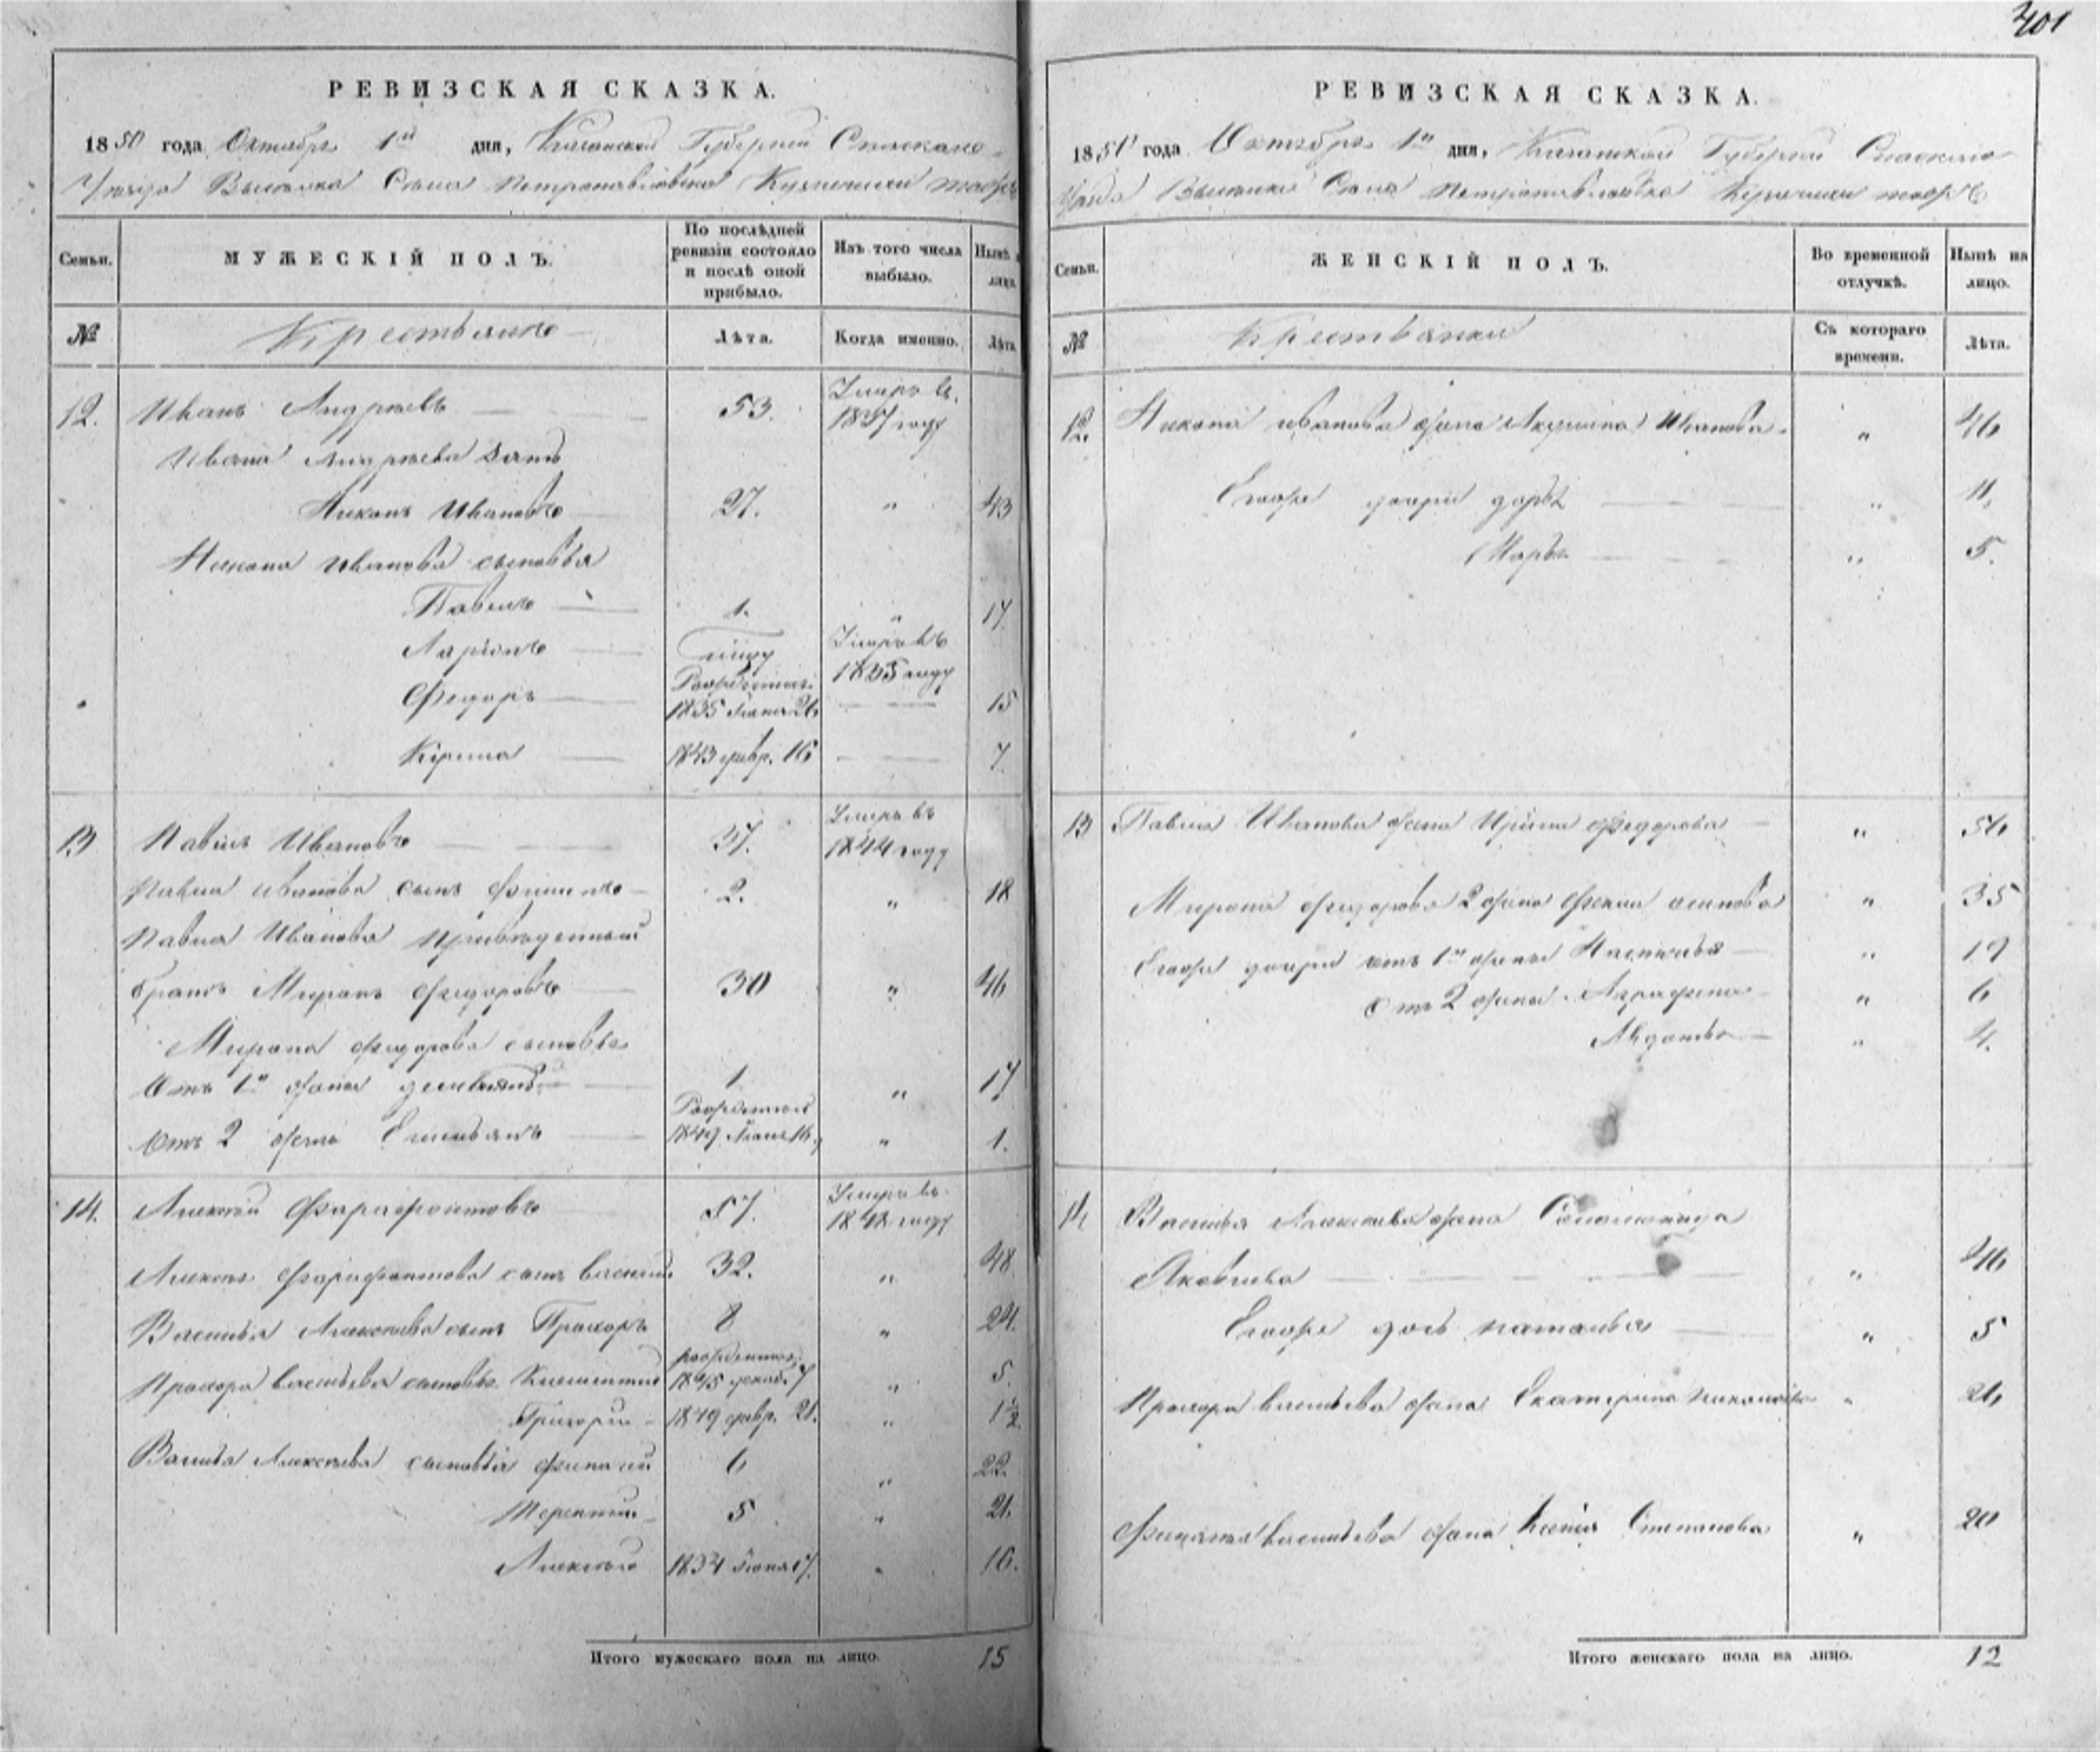 401
РЕВИЗСКАЯ СКАЗКА.
1850 года Октября 1й дня, Казанской Губернiи Спаскаго
Уѣзда Выселка Села Петропавловска Кузнечихи тожъ
Семьи.
МУЖЕСКIЙ ПОЛЪ.
По послѣдней ревизiи состояло и послѣ оной прибыло.
Изъ того числа выбыло.
Нынѣ
лица.
№
Крестьяне
Лѣта.
Когда именно.
Лѣта
12. Иванъ Андреевъ 53. Умеръ въ 1837 году
Ивана Андреева зять
Никонъ Ивановъ 27. " 43
Никона Иванова сыновья
Павелъ 1. " 17.
Ларiонъ Умеръ въ 1835 году
Федоръ Рожденъ 1835 26 15
Кирила 1843 февр. 16 7.
13 Павелъ Ивановъ 37. Умеръ въ 1844 году
Павла Иванова сынъ Филипъ 2. " 18
Павла Иванова приведенный
братъ Миронъ Федоровъ 30 " 46
Мирона Федорова сыновья
Отъ 1й жены 1 " 17
Отъ 2 жены Емельянъ Рожденный 1849 16 " 1.
14. Алексей Фарафонтовъ 57. Умеръ въ 1842 году
Алексея Фарафонтова сынъ Василий 32. " 48
Василья Алексеева сынъ Прохоръ 8 " 24.
Прохора Васильева сыновья Климентий рожденные 1845 декаб. 7 " 5.
Григорий 1849 февр. 21. " 1½
Василья Алексеева сыновья 6 " 22
Терентий 5 " 21.
Алексей 1834 Iюня 17. " 16.
Итого мужескаго пола на лицо. 15
РЕВИЗСКАЯ СКАЗКА.
1850 года Октября 1й дня, Казанской Губернiи Спаскаго
Уѣзда Выселка Села Петропавловска Кузнечихи тожъ
Семьи.
ЖЕНСКIЙ ПОЛЪ.
Во временной отлучкѣ.
Нынѣ на лицо.
№
Крестьянки
Съ котораго времени.
Лѣта.
12. Никона Иванова жена Акулина Иванова " 46
Егоже дочери Дарья " 11.
Марья " 5.
13 Павла Иванова жена Ирина Федорова " 56
Мирона Федорова 2 жена Фекла Осипова " 35
Егоже дочери отъ 1й жены Настасья " 19
отъ 2 жены Аграфена " 6
Авдотья " 4.
14 Василья Алексеева жена Соломонида
Яковлева " 46
Егоже дочь Наталья " 5
Прохора Васильева жена Екатерина " 26
Васильева жена Ксенiя Степанова " 20
Итого женскаго пола на лицо. 12